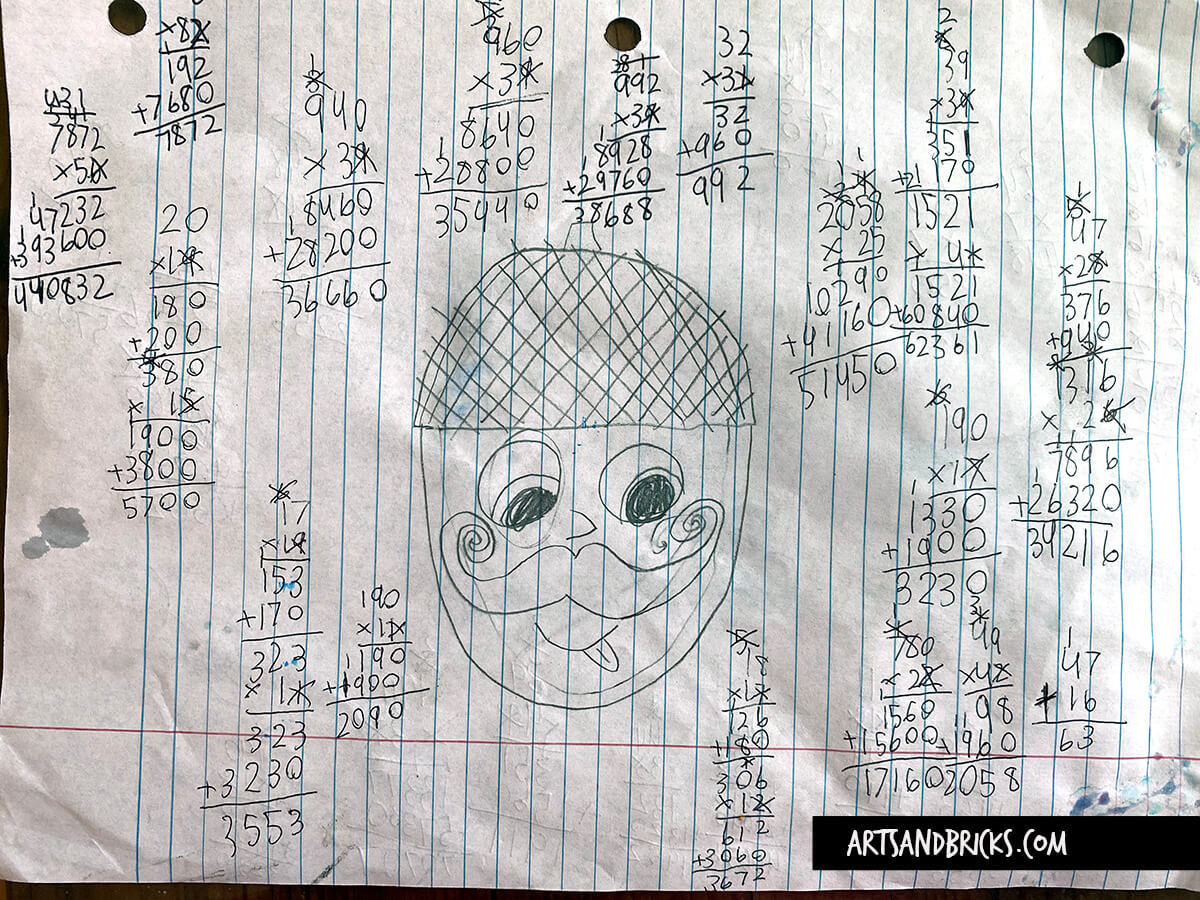 x82
192
+7680
7872
431
7872
x56
47232
+393600
440832
20
x19
180
+200
380
x 15
1900
+3800
5700
940
x39
8460
+28200
36660
960
x39
8640
+28800
35440
992
x39
8928
+29760
38688
32
x31
32
+960
992
2058
x 25
10290
+41160
51450
39
x39
351
+1170
1521
x 41
1521
+60840
62361
47
x28
376
+940
1316
x 26
7896
+26320
34216
190
x17
1330
+1900
3230
17
x19
153
+170
323
x 11
323
+3230
3553
190
x11
190
+1900
2090
18
x17
126
+180
306
x12
612
+3060
3672
780
x 22
1560
+15600
17160
49
x42
98
+1960
2058
1
47
+16
63
ARTSANDBRICKS.COM